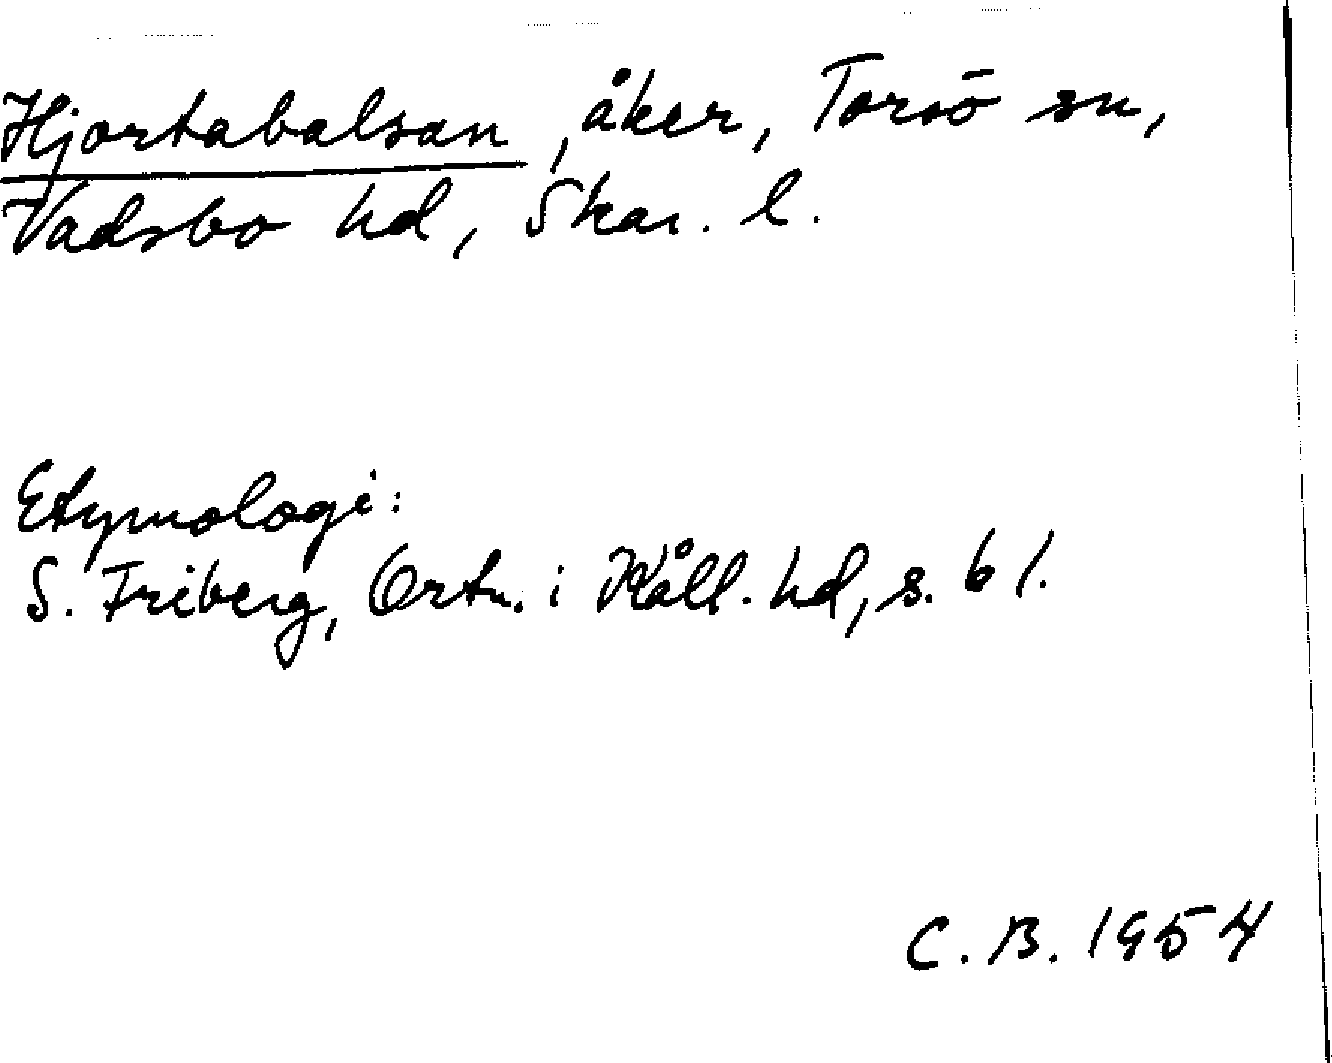 Hjortabalsan, åker, Torsö sn,
Vadsbo hd, Skar. l.
Etymologi:
S. Friberg, Ortn. i Kåll. hd, s. 61.
C. B. 1954